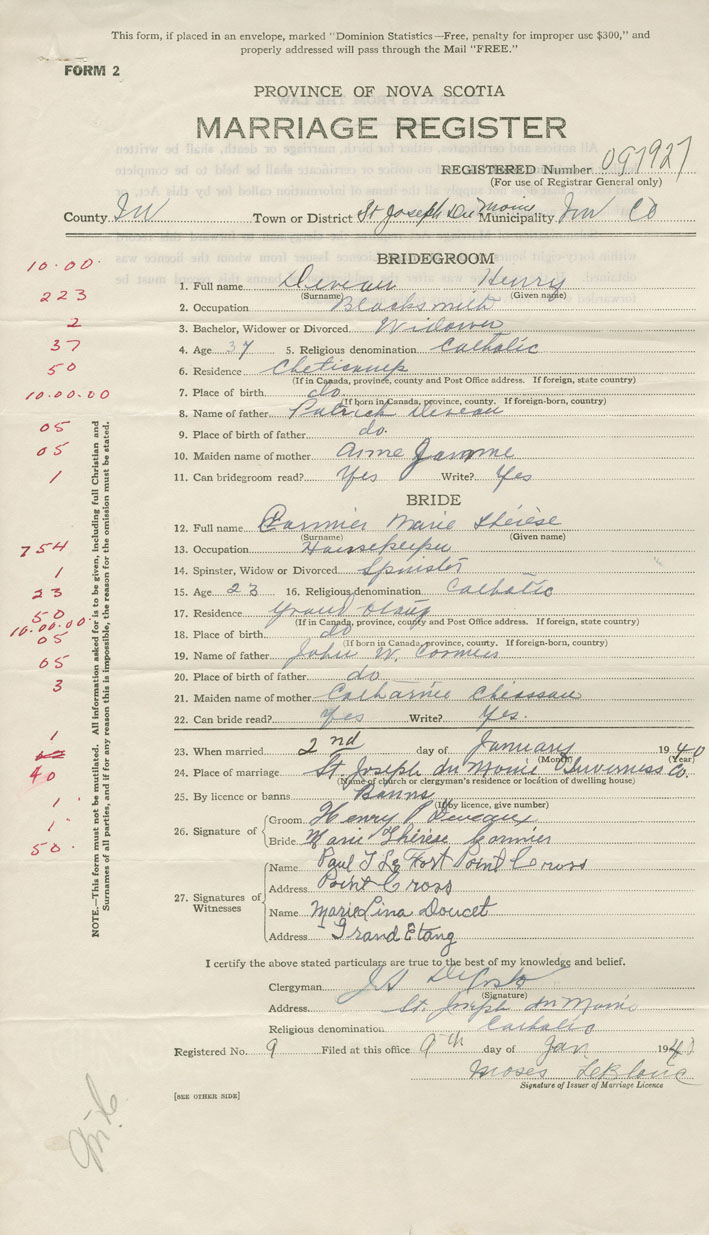 This form, if placed in an envelope, marked "Dominion Statistics—Free, penalty for improper use $300," and
properly addressed will pass through the Mail "FREE."
FORM 2
PROVINCE OF NOVA SCOTIA
MARRIAGE REGISTER
REGISTERED Number 097927
(For use of Registrar General only)
County Inv Town or District St Joseph Du Moine Municipality Inv Co
BRIDEGROOM
10.00.
1. Full name Deveau Henry
(Surname) (Given name)
223
2. Occupation Blacksmith
2
3. Bachelor, Widower or Divorced Widower
37
4. Age 37 5. Religious denomination Catholic
50
6. Residence Cheticamp
(If in Canada, province, county and Post Office address. If foreign, state country)
10.00.00
7. Place of birth do.
(If born in Canada, province, county. If foreign-born, country)
8. Name of father Patrick Deveau
05
9. Place of birth of father do.
05
10. Maiden name of mother Anne
1
11. Can bridegroom read? Yes Write? Yes
BRIDE
12. Full name Cormier Marie Thérèse
(Surname) (Given name)
754
13. Occupation Housekeeper
1
14. Spinster, Widow or Divorced Spinster
23
15. Age 23 16. Religious denomination Catholic
50
17. Residence Grand Etang
(If in Canada, province, county and Post Office address. If foreign, state country)
10.00.00
05
18. Place of birth do
(If born in Canada, province, county. If foreign-born, country)
19. Name of father John W. Cormier
05
20. Place of birth of father do
3
21. Maiden name of mother Catharine Chiasson
22. Can bride read? Yes Write? Yes.
1
23. When married 2nd day of January 1940
(Month) (Year)
40
24. Place of marriage St. Joseph du Moine Inverness Co.
(Name of church or clergyman's residence or location of dwelling house)
25. By licence or banns Banns
(If by licence, give number)
1
1
50.
26. Signature of
Groom Henry P Deveaux
Bride Marie Thérèse Cormier
27. Signatures of Witnesses
Name Paul J Le Fort Point Cross
Address Point Cross
Name Marie Lina Doucet
Address Grand Etang
NOTE.—This form must not be mutilated. All information asked for is to be given, including full Christian and
Surnames of all parties, and if for any reason this is impossible, the reason for the omission must be stated.
I certify the above stated particulars are true to the best of my knowledge and belief.
Clergyman
(Signature)
Address St. Joseph du Moine
Religious denomination Catholic
Registered No. 9 Filed at this office 9th day of Jan 1940
Moses LeBlanc
Signature of Issuer of Marriage Licence
[SEE OTHER SIDE]